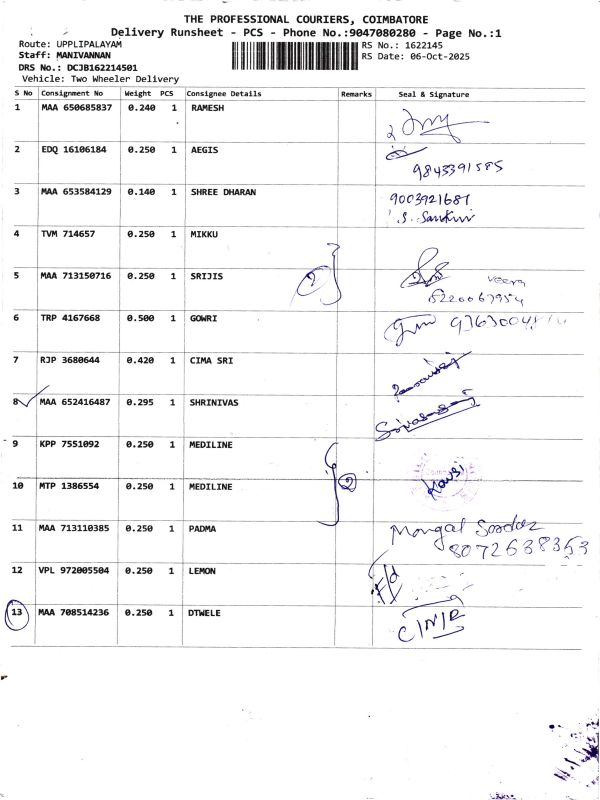 THE PROFESSIONAL COURIERS, COIMBATORE
Delivery Runsheet - PCS - Phone No.:9047080280 - Page No.:1
Route: UPPLIPALAYAM RS No.: 1622145
Staff: MANIVANNAN RS Date: 06-Oct-2025
DRS No.: DCJB162214501
Vehicle: Two Wheeler Delivery
S No Consignment No Weight PCS Consignee Details Remarks Seal & Signature
1 MAA 650685837 0.240 1 RAMESH
2
2 EDQ 16106184 0.250 1 AEGIS
9843391585
3 MAA 653584129 0.140 1 SHREE DHARAN 9003921687
4 TVM 714657 0.250 1 MIKKU
5 MAA 713150716 0.250 1 SRIJIS 2 Veera
6 TRP 4167668 0.500 1 GOWRI
7 RJP 3680644 0.420 1 CIMA SRI
8 MAA 652416487 0.295 1 SHRINIVAS
9 KPP 7551092 0.250 1 MEDILINE
10 MTP 1386554 0.250 1 MEDILINE 2 Kavsi
11 MAA 713110385 0.250 1 PADMA Mongal Sardar
8072638353
12 VPL 972005504 0.250 1 LEMON F/d
13 MAA 708514236 0.250 1 DTWELE C/N/R